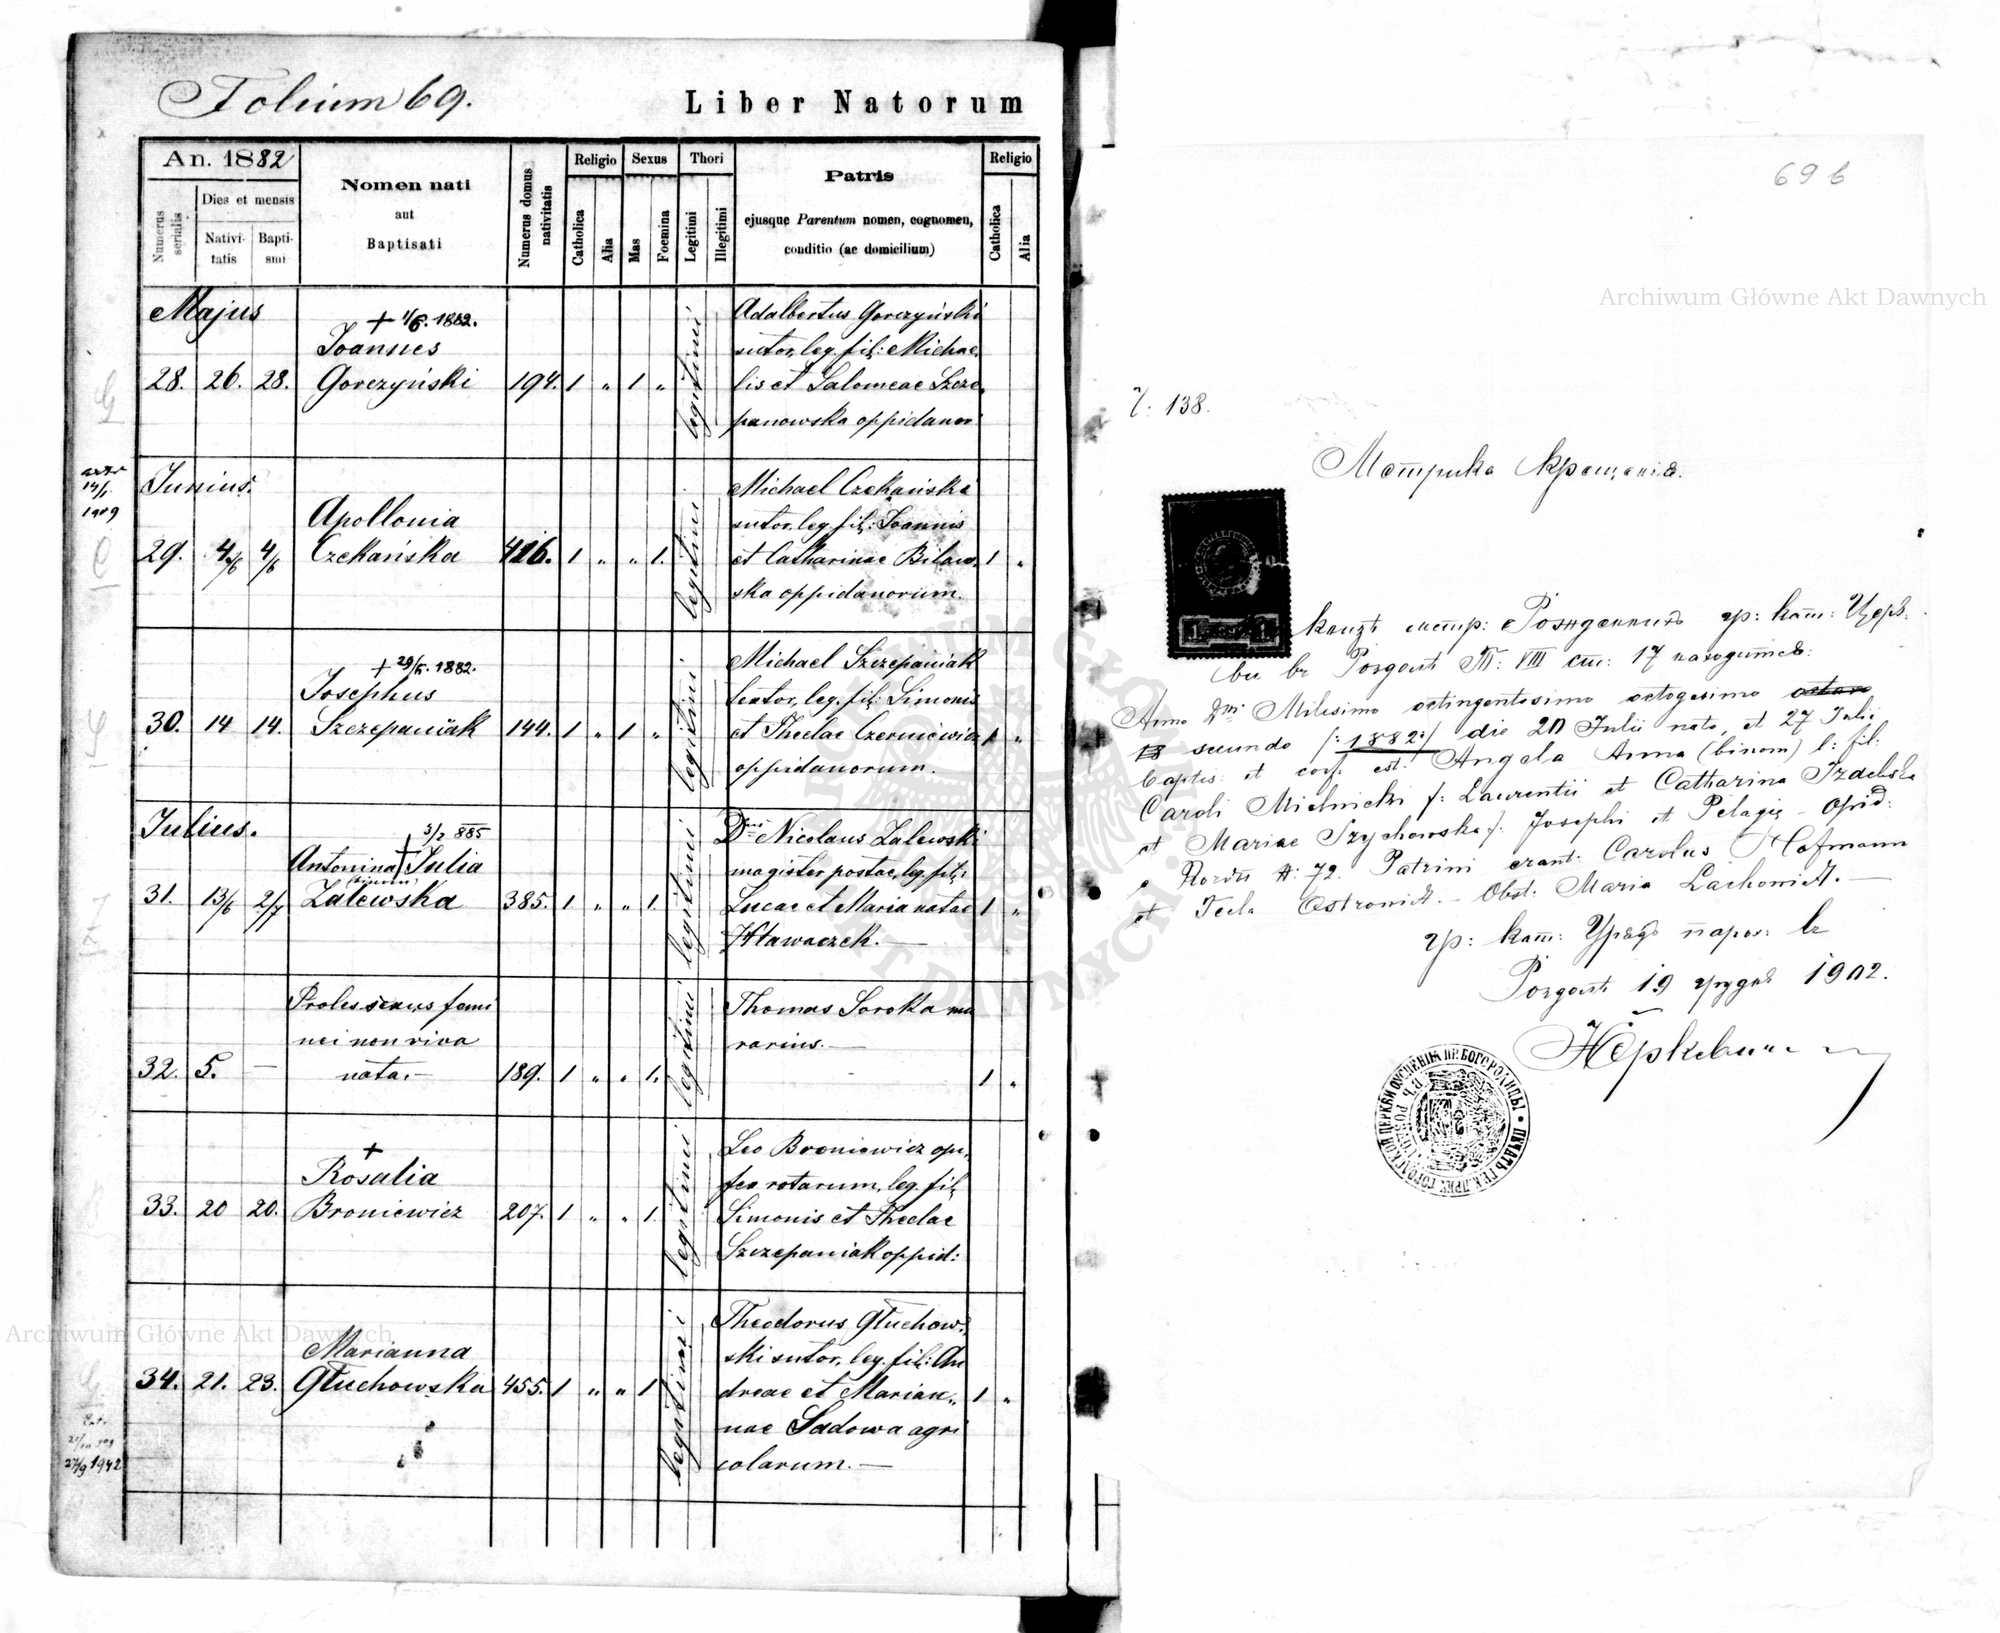 Folium 69.
Liber Natorum
An. 1882
Numerus serialis
Dies et mensis
Nativitatis
Baptismi
Nomen nati
aut
Baptisati
Numerus domus nativitatis
Religio
Catholica
Alia
Sexus
Mas
Foemina
Thori
Legitimi
Illegitimi
Patris
ejusque Parentum nomen, cognomen,
conditio (ac domicilium)
Religio
Catholica
Alia
Majus
+ 1/6. 1882.
Joannes
28. 26. 28. Gorczyński 194. 1 „ 1 „
legitimi
Adalbertus Gorczyński
sutor, leg. fil: Michae,
lis et Salomeae Szcze,
panowska oppidanor:
14/1
1909
Junius.
Apollonia
29. 4/6 4/6 Czekańska 416. 1 „ „ 1.
legitimi
Michael Czekański
sutor, leg. fil: Joannis
et Catharinae Bilaw,
ska oppidanorum.
1 „
+ 29/6. 1882.
Josephus
30. 14 14. Szczepaniak 144. 1 „ 1 „
legitimi
Michael Szczepaniak
leg. fil: Simonis
et Theclae Czerniewicz
oppidanorum.
1 „
Julius.
3/2 885
Antonina + Julia
(binom)
31. 13/6 2/7 Zalewska 385. 1 „ „ 1.
legitimi
Dnus Nicolaus Zalewski
magister postae, leg. fil:
Lucae et Maria natae
Hławaczek. —
1 „
Proles sexus femi
nei non viva
32. 5. — nata. — 189. 1 „ „ 1.
legitimi
Thomas Soroka mu
rarius. —
1 „
+
Rosalia
33. 20 20. Broniewicz 207. 1 „ „ 1.
legitimi
Leo Broniewicz opi,
fex rotarum, leg. fil:
Simonis et Theclae
Szczepaniak oppid:
Marianna
34. 21. 23. Głuchowska 455. 1 „ „ 1.
legitimi
Theodorus Głuchow,
ski sutor, leg. fil: An
dreae et Marian,
nae Sadowa agri
colarum. —
1 „
27/9 1942
69 b
Ч: 138.
Метрика Крещенія.
1 1
Книзѣ метр: Рожденныхъ гр: кат: Церк-
ви въ Рогат. Т: VIII ст: 17 находитсѧ:
Anno Dni Milesimo octingentesimo octogesimo
secundo /: 1882 :/ die 20 Julii nata, et 27 Julii
baptis: et conf. est: Angela Anna (binom) l: fil:
Caroli Mielnicki f: Laurentii et Catharina
et Mariae Szychowska f: Josephi et Pelagię -
N: 72. Patrini erant: Carolus Hofmann
et Tecla Ostrowicz. - Obst: Maria Lachowicz. —
гр: кат: Урядъ парох: въ
19 грудня 1902.
Archiwum Główne Akt Dawnych
Archiwum Główne Akt Dawnych
ARCHIWUM GŁÓWNE AKT DAWNYCH